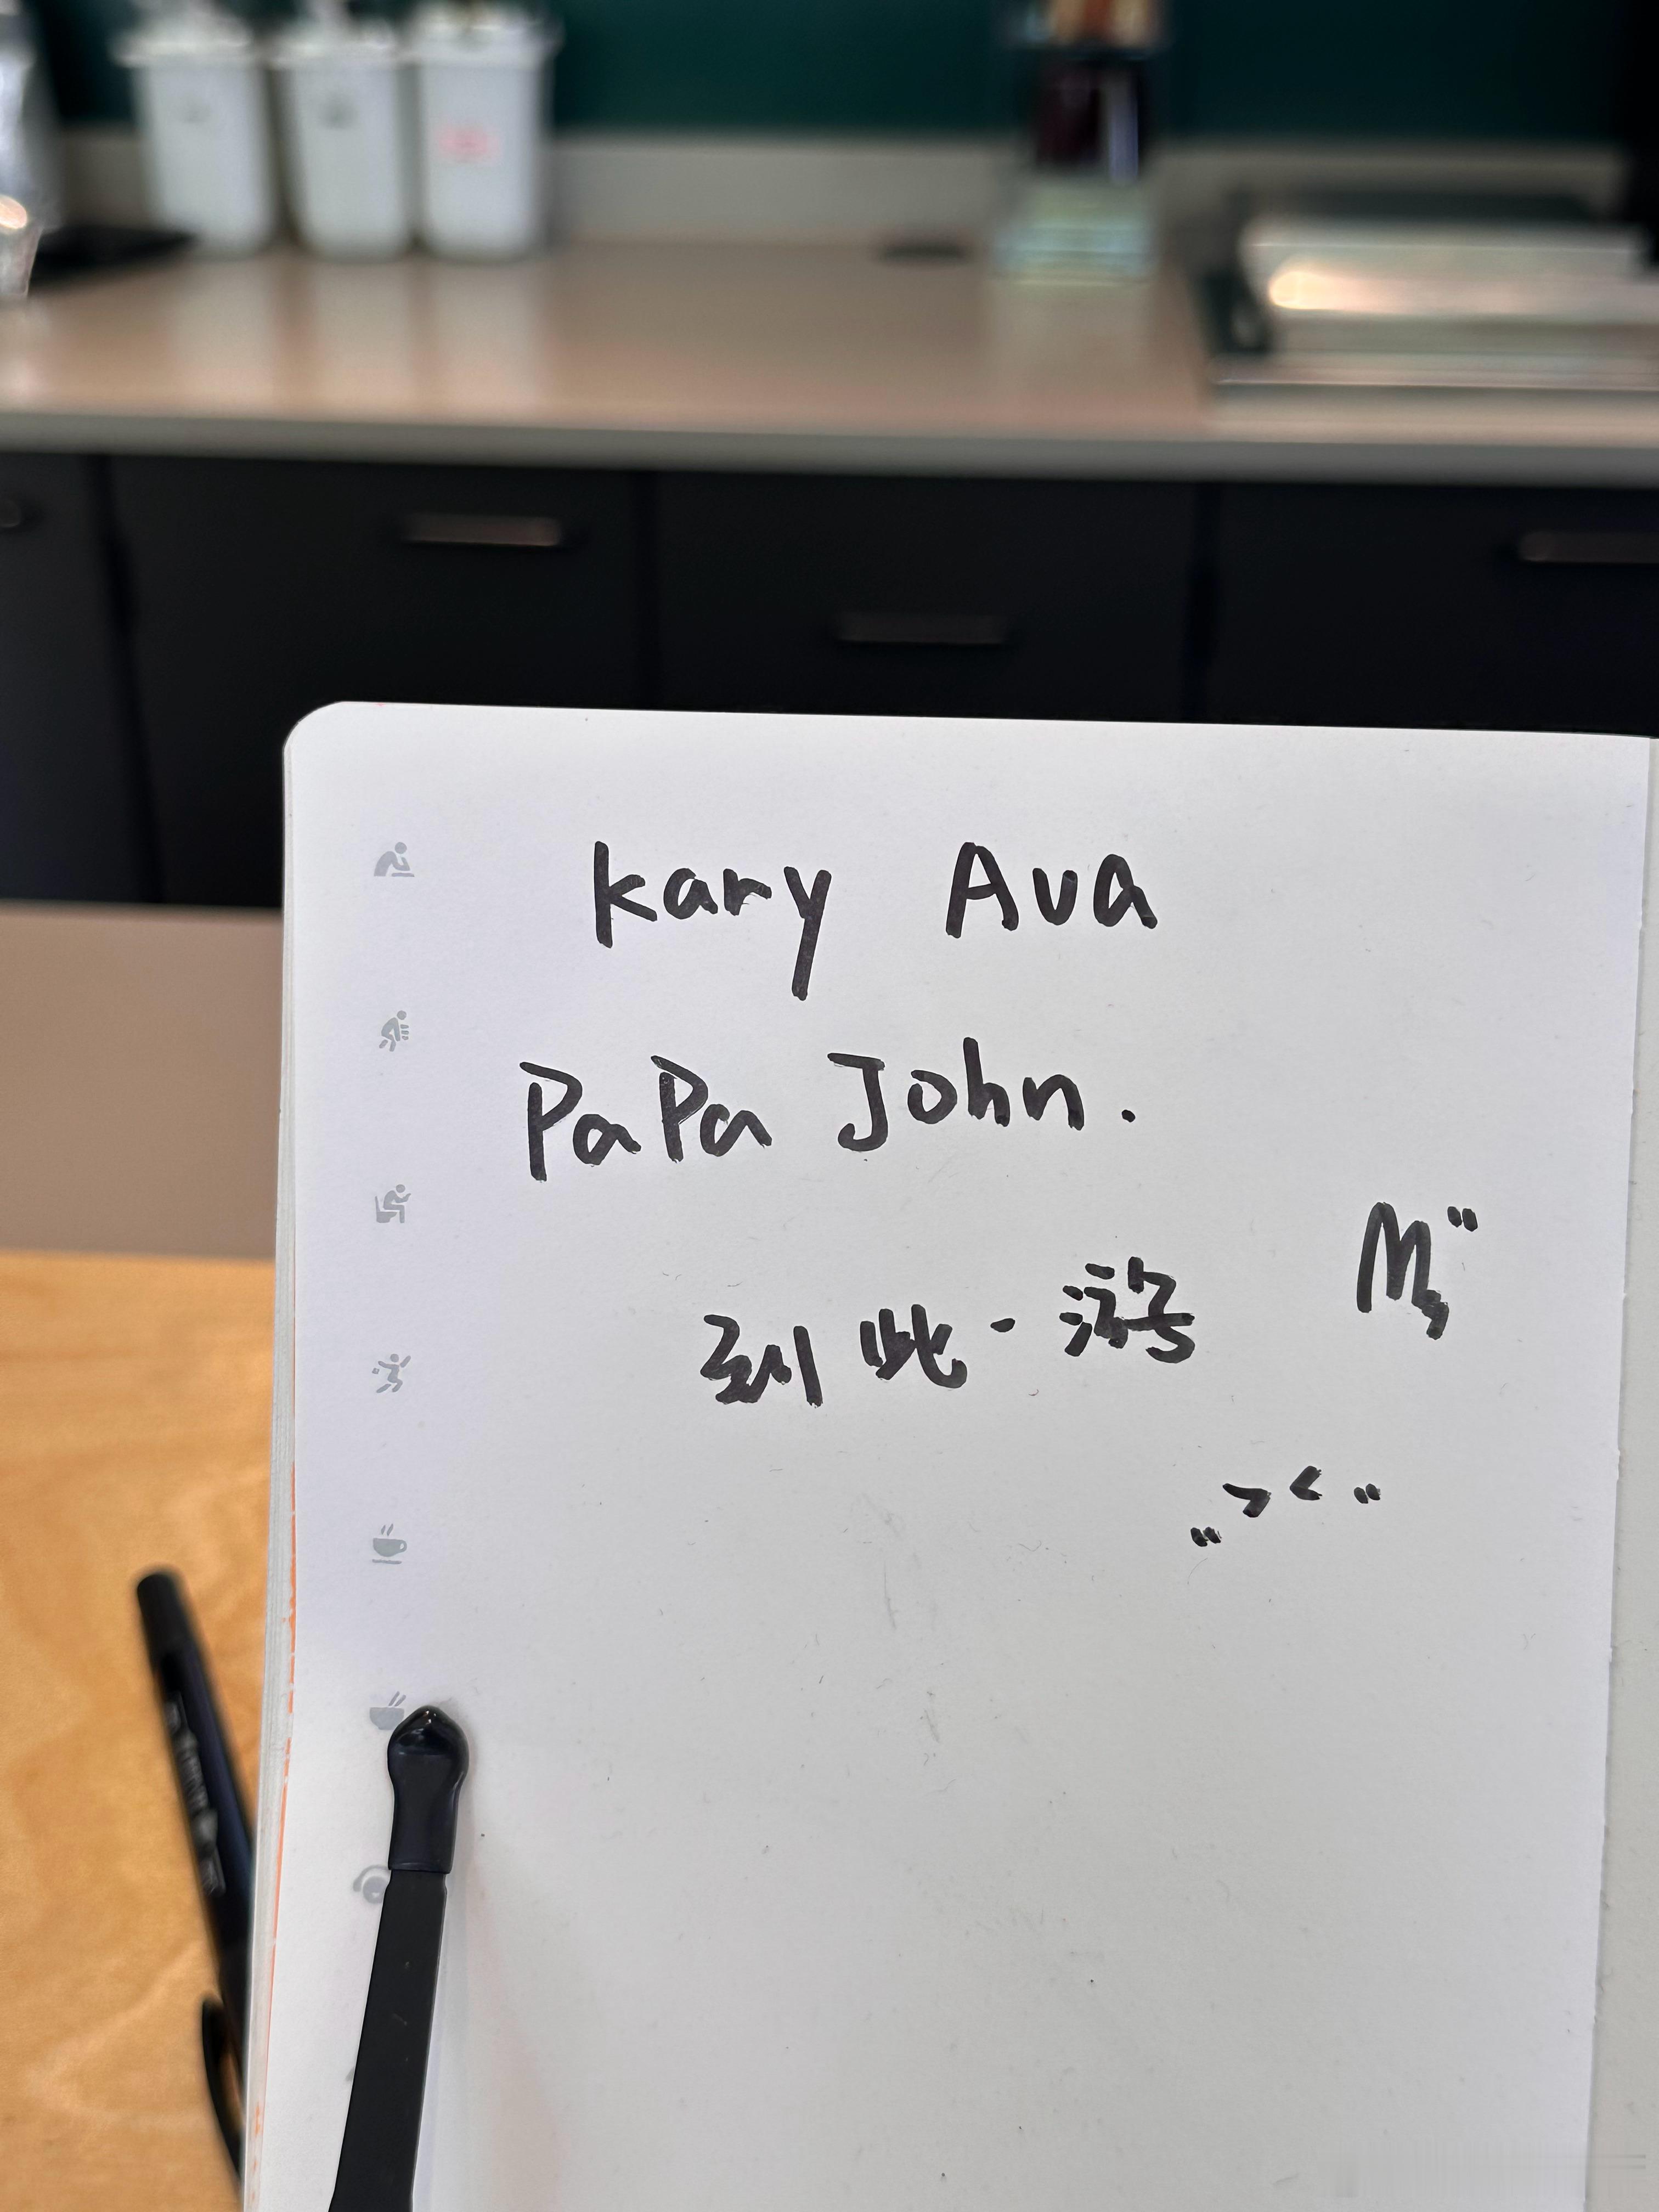 Kary Ava
PaPa John.
到此一游